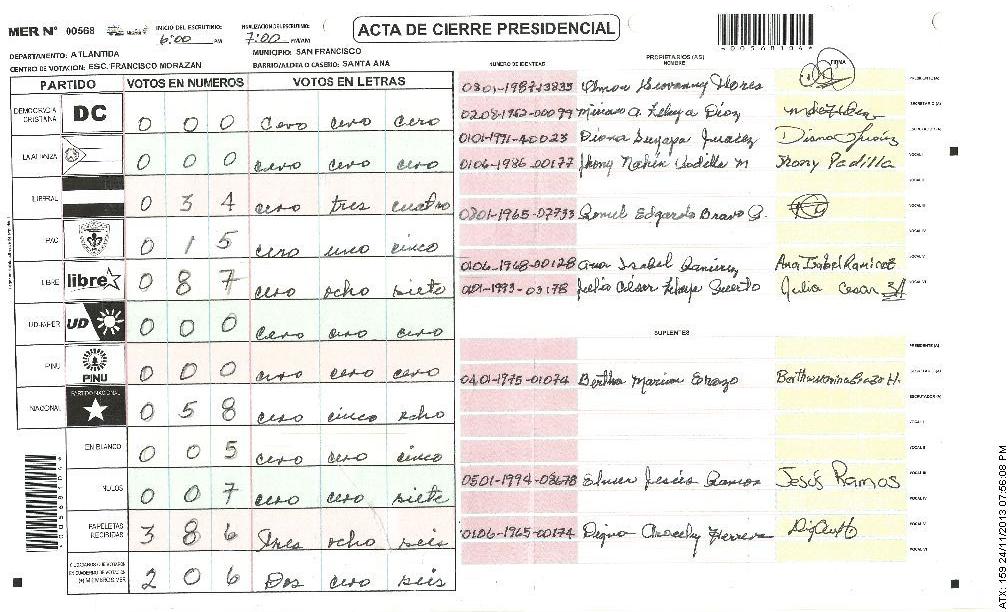 MER Nº 00568 INICIO DEL ESCRUTINIO: 6:00 PM FINALIZACION DEL ESCRUTINIO: 7:00 PM/AM ACTA DE CIERRE PRESIDENCIAL
DEPARTAMENTO: ATLANTIDA MUNICIPIO: SAN FRANCISCO
CENTRO DE VOTACION: ESC. FRANCISCO MORAZAN BARRIO/ALDEA O CASERIO: SANTA ANA
PARTIDO VOTOS EN NUMEROS VOTOS EN LETRAS
DEMOCRACIA CRISTIANA DC 0 0 0 cero cero cero
LA ALIANZA 0 0 0 cero cero cero
LIBERAL 0 3 4 cero tres cuatro
PAC 0 1 5 cero uno cinco
LIBRE libre 0 8 7 cero ocho siete
UD-FAPER UD 0 0 0 cero cero cero
PINU PINU 0 0 0 cero cero cero
NACIONAL PARTIDO NACIONAL 0 5 8 cero cinco ocho
EN BLANCO 0 0 5 cero cero cinco
NULOS 0 0 7 cero cero siete
PAPELETAS RECIBIDAS 3 8 6 Tres ocho seis
2 0 6 Dos cero seis
NUMERO DE IDENTIDAD PROPIETARIOS (AS) NOMBRE FIRMA
Geovanny Flores PRESIDENTE (A)
0208-1962-00099 Zelaya Díaz SECRETARIO (A)
0101-1991-40023 Diana Suyapa Diana
0106-1986-00177 Jhony Nahín Padilla M Jhony Padilla VOCAL I
VOCAL II
0801-1965-07733 Edgardo Bravo VOCAL III
VOCAL IV
0106-1968-00128 Ana Isabel Ramirez Ana Isabel Ramirez VOCAL V
0101-1993-03178 Julio Cesar Zelaya Julio Cesar VOCAL VI
SUPLENTES
PRESIDENTE (A)
0401-1975-01074 Bertha Marina SECRETARIO (A)
ESCRUTADOR (A)
VOCAL I
VOCAL II
0501-1994-08678 Elmer Jesús Ramos Jesús Ramos VOCAL III
VOCAL IV
0106-1965-00174 Digna Aracely Herrera VOCAL V
VOCAL VI
ATX: 159 24/11/2013 07:56:08 PM